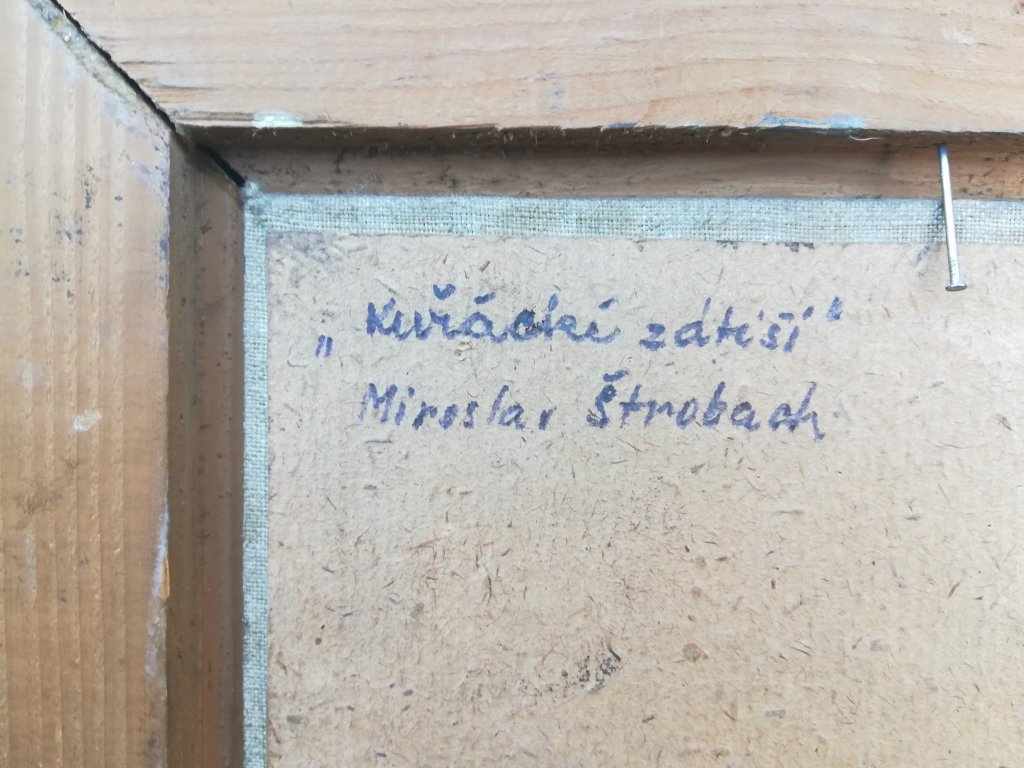 „Kuřácké zátiší“
Miroslav Štrobach